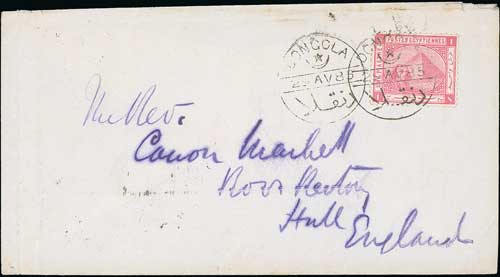 DONGOLA
AV 85
دنقلا
POSTES EGYPTIENNES
The Rev.
Canon
Ross Rectory
Hull
England